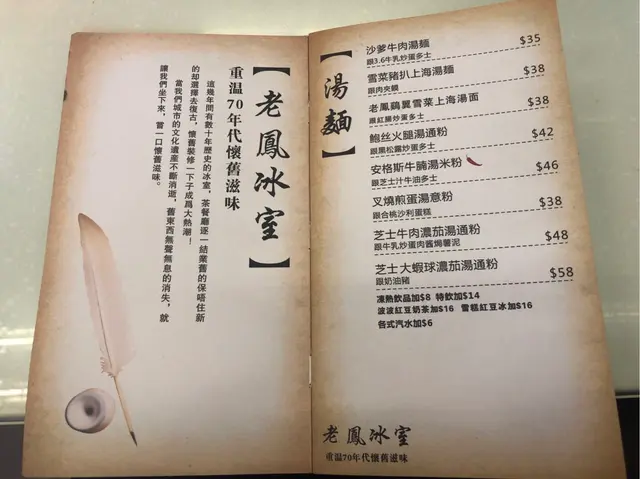 【老鳳冰室】
重温70年代懷舊滋味
這幾年間有數十年歷史的冰室，茶餐廳逐一結業舊的保唔住新
的却選擇去復古，懷舊裝修一下子成爲大熱潮！
當我們城市的文化遺産不斷消逝，舊東西無聲無息的消失，就
讓我們坐下來，嘗一口懷舊滋味。
【湯麵】
沙爹牛肉湯麵 $35
跟3.6牛乳炒蛋多士
雪菜豬扒上海湯麵 $38
跟肉夾饃
老鳳鷄翼雪菜上海湯面 $38
跟紅腸炒蛋多士
鮑丝火腿湯通粉 $42
跟黑松露炒蛋多士
安格斯牛腩湯米粉 $46
跟芝士汁牛油多士
叉燒煎蛋湯意粉 $38
跟合桃沙利蛋糕
芝士牛肉濃茄湯通粉 $48
跟牛乳炒蛋肉酱焗薯泥
芝士大蝦球濃茄湯通粉 $58
跟奶油豬
凍熱飲品加$8 特飲加$14
波波紅豆奶茶加$16 雪糕紅豆冰加$16
各式汽水加$6
老鳳冰室
重温70年代懷舊滋味